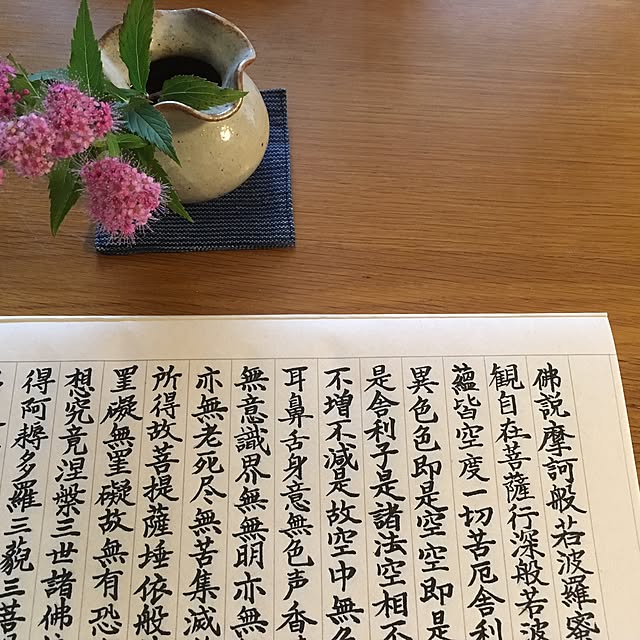 佛説摩訶般若波羅蜜
観自在菩薩行深般若波
蘊皆空度一切苦厄舎利
異色色即是空空即是
是舎利子是諸法空相不
不増不減是故空中無色
耳鼻舌身意無色声香
無意識界無無明亦無
亦無老死尽無苦集滅
所得故菩提薩埵依般
罣礙無罣礙故無有恐
想究竟涅槃三世諸佛
得阿耨多羅三藐三菩